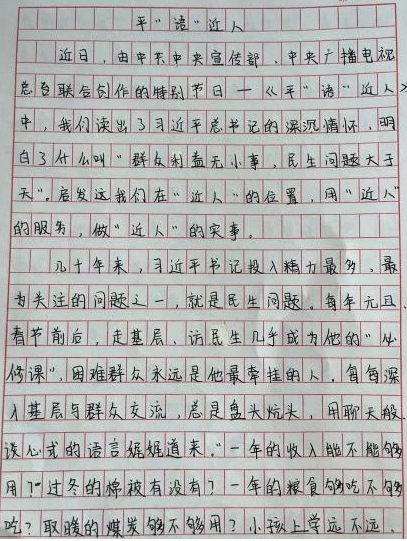 平"语"近人
近日，由中共中央宣传部、中央广播电视
总台联合创作的特别节目一《平"语"近人》
中，我们读出了习近平总书记的深沉情怀，明
白了什么叫"群众利益无小事，民生问题大于
天"。启发这我们在"近人"的位置，用"近人"
的服务，做"近人"的实事。
几十年来，习近平书记投入精力最多、最
为关注的问题之一，就是民生问题。每年元旦、
春节前后，走基层、访民生几乎成为他的"必
修课"，困难群众永远是他最牵挂的人。每每深
入基层与群众交流，总是盘头炕头，用聊天般、
谈心式的语言娓娓道来。"一年的收入能不能够
用？""过冬的棉被有没有？一年的粮食够吃不够
吃？取暖的煤炭够不够用？小孩上学远不远、